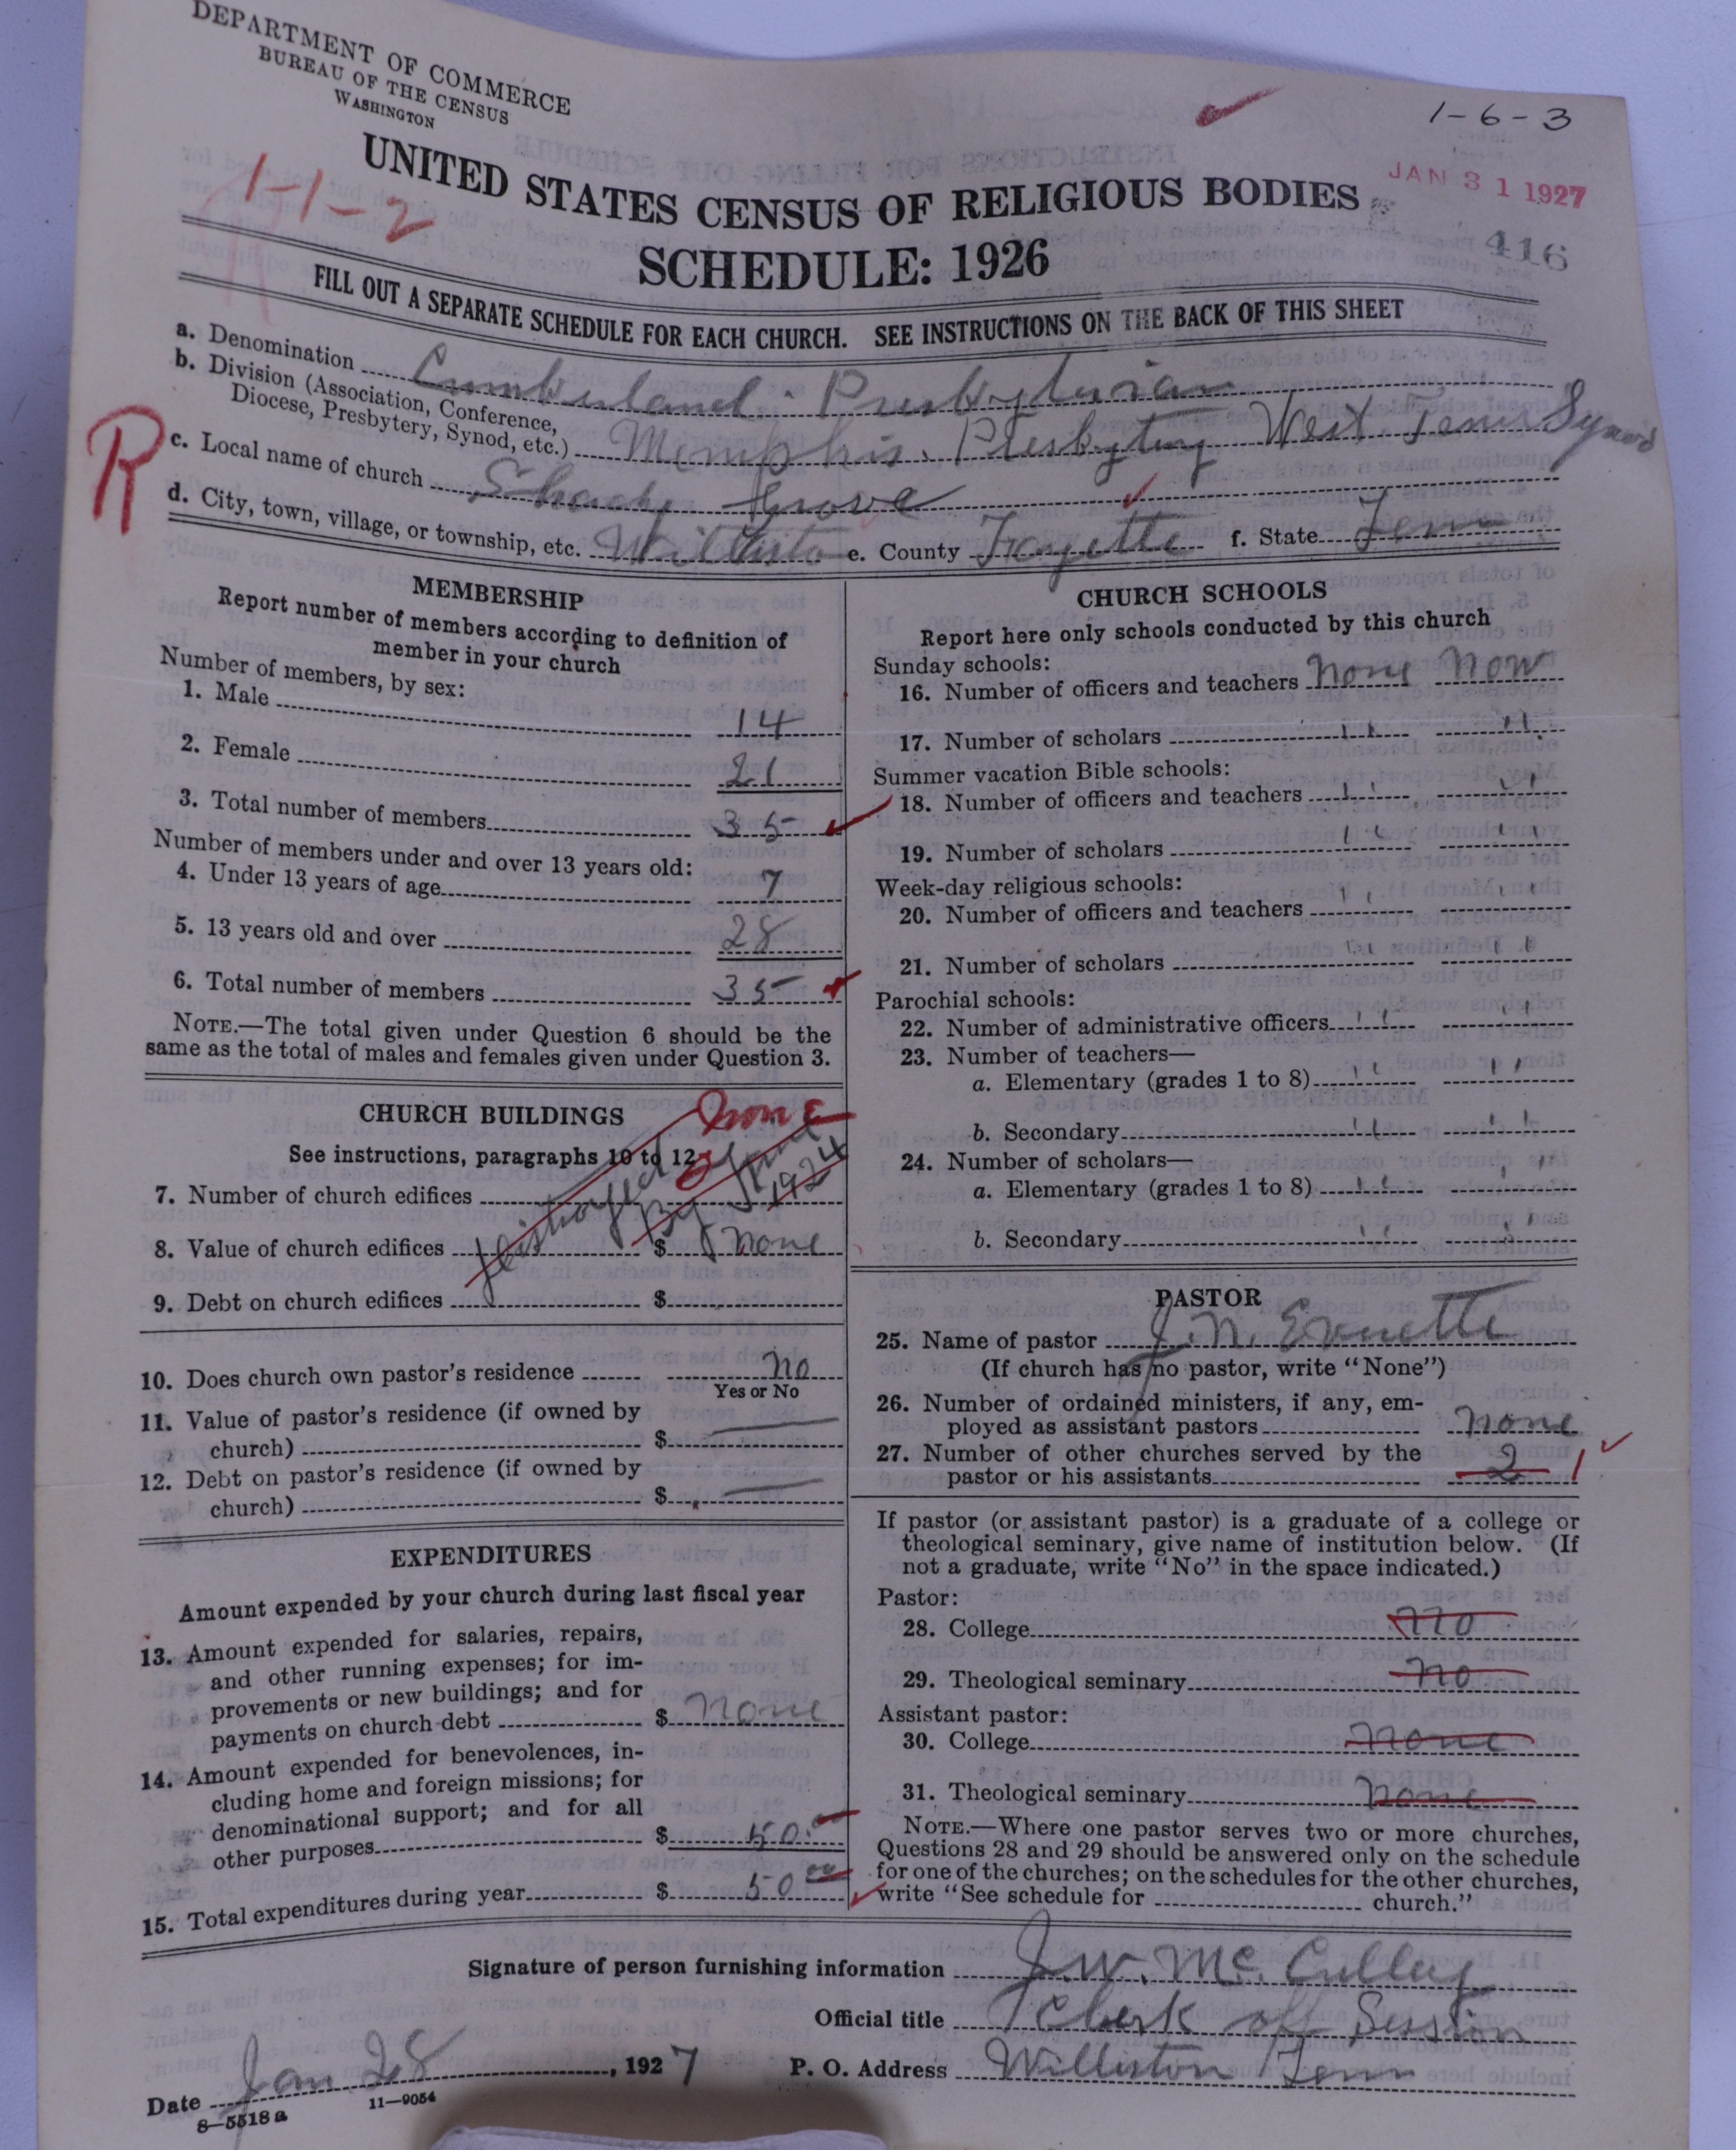 DEPARTMENT OF COMMERCE
BUREAU OF THE CENSUS
WASHINGTON
1-6-3
JAN 31 1927
1-1-2
UNITED STATES CENSUS OF RELIGIOUS BODIES
416
SCHEDULE: 1926
FILL OUT A SEPARATE SCHEDULE FOR EACH CHURCH. SEE INSTRUCTIONS ON THE BACK OF THIS SHEET
a. Denomination Cumberland Presbyterian
b. Division (Association, Conference,
Diocese, Presbytery, Synod, etc.) Memphis Presbytery West Tenn Synod
R
c. Local name of church Shady Grove
d. City, town, village, or township, etc. Williston e. County Fayette f. State Tenn
MEMBERSHIP
Report number of members according to definition of
member in your church
Number of members, by sex:
1. Male 14
2. Female 21
3. Total number of members 35
Number of members under and over 13 years old:
4. Under 13 years of age 7
5. 13 years old and over 28
6. Total number of members 35
NOTE.—The total given under Question 6 should be the
same as the total of males and females given under Question 3.
CHURCH BUILDINGS
none
See instructions, paragraphs 10 to 12
7. Number of church edifices
By 1924
8. Value of church edifices $ none
9. Debt on church edifices $
10. Does church own pastor's residence no
Yes or No
11. Value of pastor's residence (if owned by
church) $ —
12. Debt on pastor's residence (if owned by
church) $ —
EXPENDITURES
Amount expended by your church during last fiscal year
13. Amount expended for salaries, repairs,
and other running expenses; for im-
provements or new buildings; and for
payments on church debt $ none
14. Amount expended for benevolences, in-
cluding home and foreign missions; for
denominational support; and for all
other purposes $ 50.
15. Total expenditures during year $ 50 00
CHURCH SCHOOLS
Report here only schools conducted by this church
Sunday schools:
16. Number of officers and teachers none now
17. Number of scholars " "
Summer vacation Bible schools:
18. Number of officers and teachers " "
19. Number of scholars " "
Week-day religious schools:
20. Number of officers and teachers " "
21. Number of scholars " "
Parochial schools:
22. Number of administrative officers " "
23. Number of teachers—
a. Elementary (grades 1 to 8) " "
b. Secondary " "
24. Number of scholars—
a. Elementary (grades 1 to 8) " "
b. Secondary " "
PASTOR
25. Name of pastor J. N. Evnette
(If church has no pastor, write "None")
26. Number of ordained ministers, if any, em-
ployed as assistant pastors none
27. Number of other churches served by the
pastor or his assistants 2 1
If pastor (or assistant pastor) is a graduate of a college or
theological seminary, give name of institution below. (If
not a graduate, write "No" in the space indicated.)
Pastor:
28. College no
29. Theological seminary no
Assistant pastor:
30. College none
31. Theological seminary none
NOTE.—Where one pastor serves two or more churches,
Questions 28 and 29 should be answered only on the schedule
for one of the churches; on the schedules for the other churches,
write "See schedule for church."
Signature of person furnishing information J. W. McCulley
Official title Clerk off Session
Date Jan 28, 1927 P. O. Address Williston Tenn
8—5518 a 11—9054